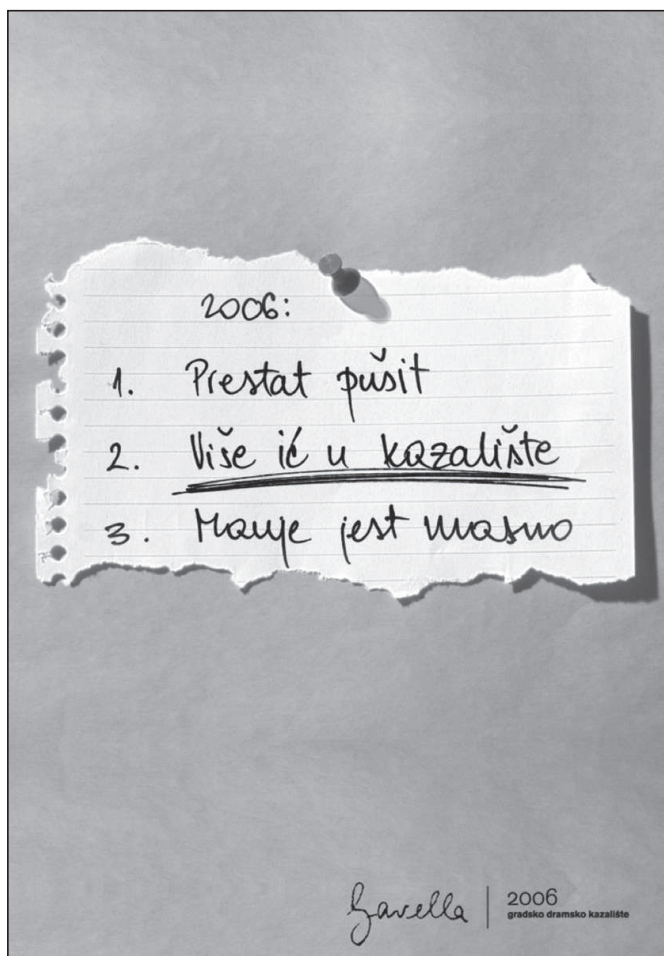 2006:
1. Prestat pušit
2. Više ić u kazalište
3. Manje jest masno
Gavella
2006
gradsko dramsko kazalište